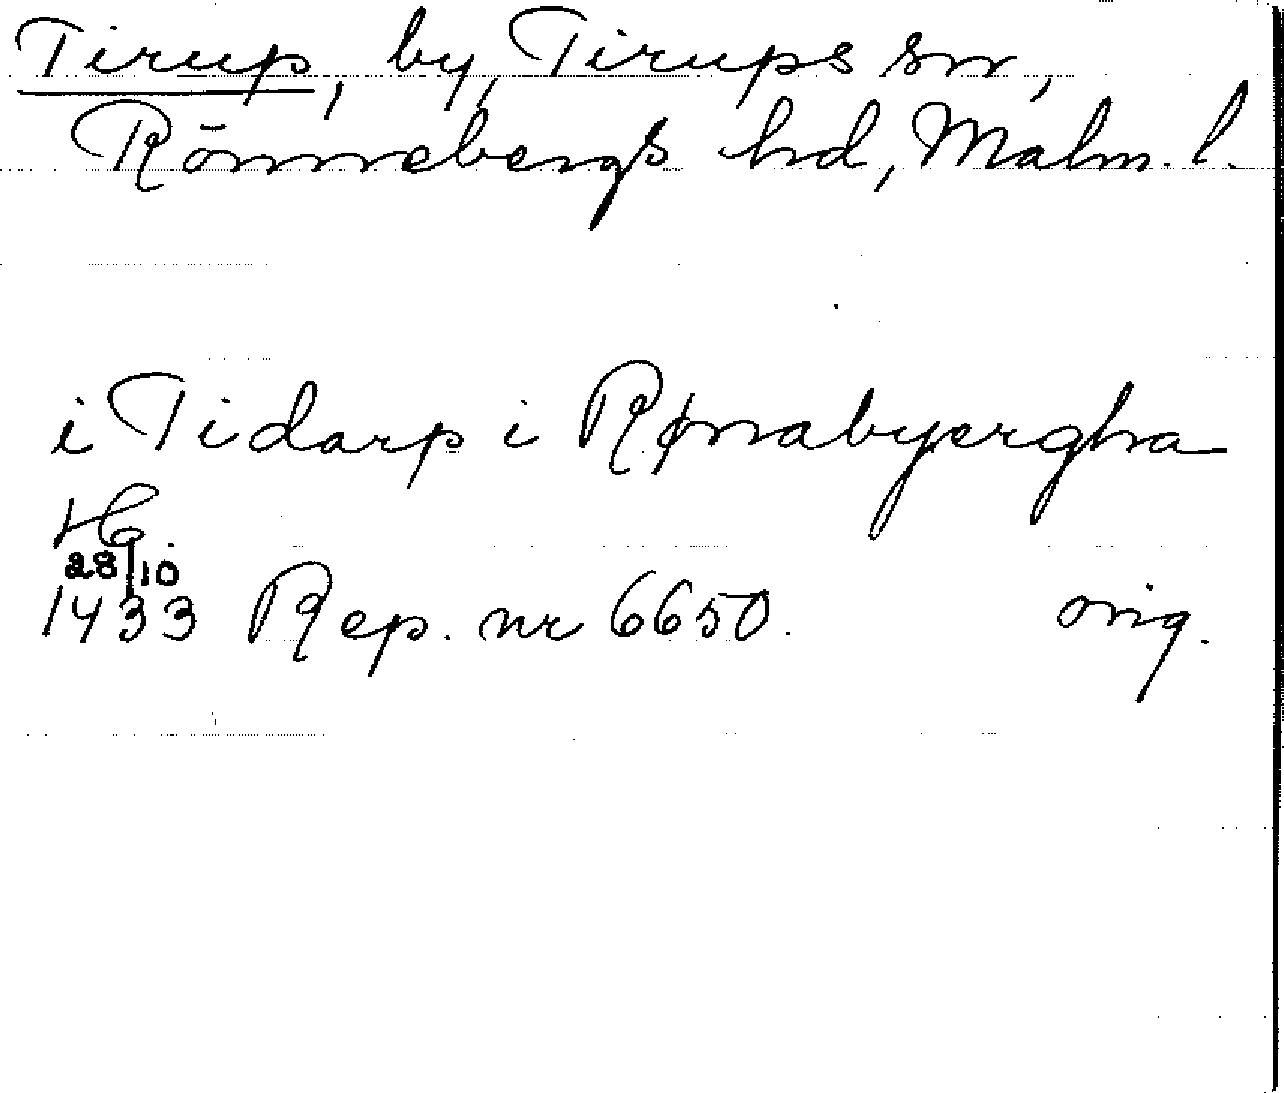 Tirup, by, Tirups sn,
Rönnebergs hd, Malm. l.
i Tidarp i Rønabyergha
H.
28/10
1433 Rep. nr 6650. orig.